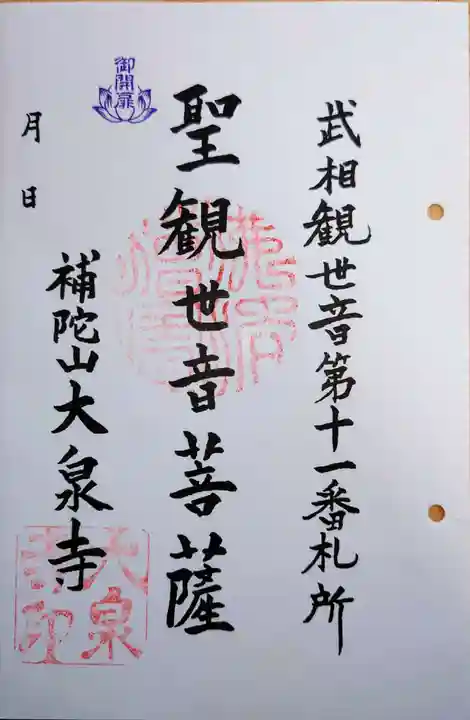 武相観世音第十一番札所
聖観世音菩薩
補陀山大泉寺
御開扉
月 日
大泉
寺印